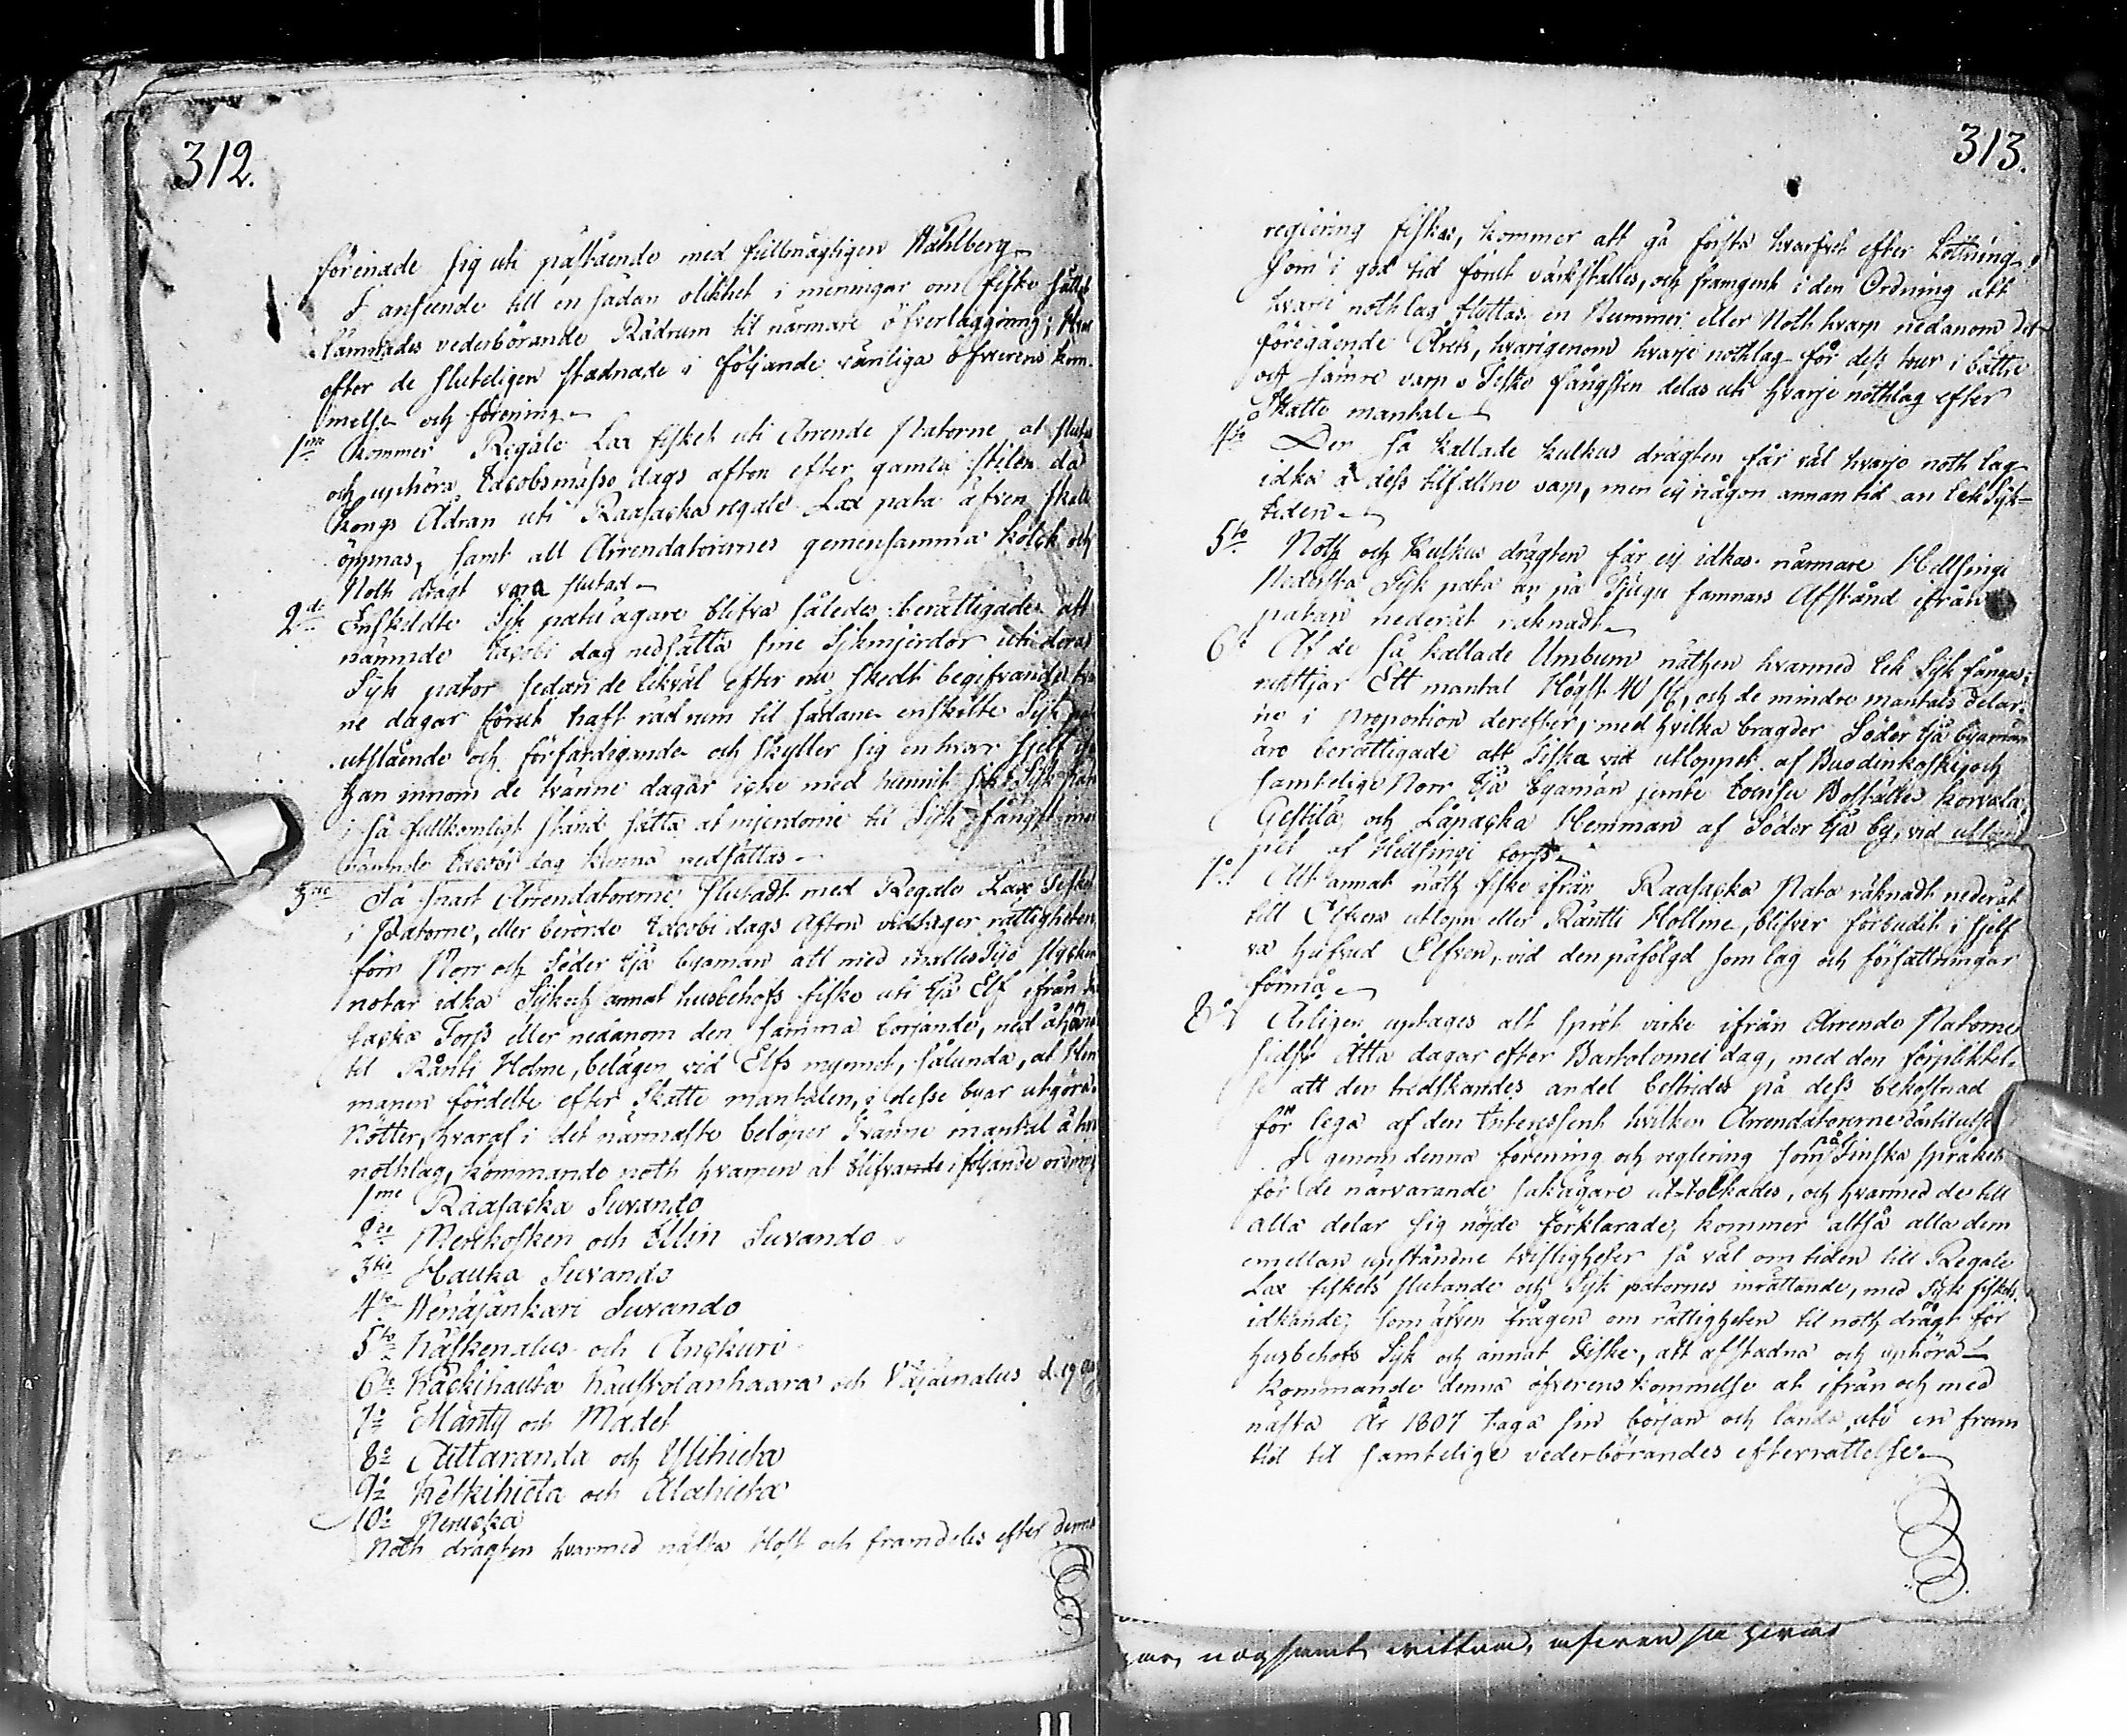 312.
förenade sig uti påstående med fullmägtigen Wåhlberg
I anseende till en sådan olikhet i meningar om fiske sättet
lämnades vederbörande Rådrum til närmare öfverläggning; hvar
efter de sluteligen stadnade i följande vänliga öfverens kom-
melse och förening
1me Kommer Regale Lax fisket uti Arrende Patorne at slutas
och uphöra Jacobsmässo dags afton efter gamla stilen då
Kongs Ådran uti Raasacka regale Lax pata äfven skall
öppnas, samt all Arrendatorernes gemensamma Kolck och
Noth drägt vara slutad
2do Enskildte Sik patu ägare blifva således berättigade att
nämnde Jacobi dag nedsätta sine Sikmjerdor uti deras
Sik pator sedan de likväl efter nu skedt begifvande två
ne dagar förut haft råd rum til sådane enskilte Sik pa
utslående och förfärdigande och skyller sig en hvar sjelf
han innom de tvänne dagar icke med hunnit
i så fullkomligt stånd sätta at mjerdorne til Sik fångst
nämnde Jacobi dag kunna nedsättas
3tio Så snart Arrendatorerne slutadt med Regale Lax Fisket
i Patorne, eller berörde Jacobi dags Afton vidtager rättigheten
för Norr och Söder Ijå byamän att med
notar idka Sik och annat husbehofs fiske uti Ijå Elf ifrån
sacka Forss eller nedanom den samma börjande, ned åt
til Räntti Holme, belägen vid Elfs mynnet, sålunda, at Hem
manen fördelte efter Skatte mantalen, i desse byar utgöra
Nötter, hvaraf i det närmaste belöper Tvänne mantal å hvar
nothlag, kommande noth hvarpen at blifva i följande ordning
1me Raasacka Suvando
2do Merikosken och Illin Suvando
3tio Hauka Suvando
4to Wenäjänkari Suvando
5to Käskenalus och Anckuri
6to Käckihauta Kauskolanhaara och Väjäinalus
7o Mänty och Mädet
8o Aittaranda och Ylihieta
9o Keskihieta och Alahieta
10o
Noth drägten hvarmed nästa Höst och framdeles efter denna
313.
reglering fiskas, kommer att gå första hvarfvet efter Lottning
som i god tid förut värkställes, och framgent i den Ordning att
hvarje nothlag flyttas en Nummer eller Noth hvarp nedanom det
föregående Årets, hvarigenom hvarje nothlag får dess tour i bättre
och sämre varp. Fiske fångsten delas uti hvarje nothlag efter
Skatte mantal
4to Den så kallade kulkus drägten får väl hvarje noth lag
idka å dess tilfallne varp, men ej någon annan tid än lek Sik-
tiden
5to Noth och Kulkus drägten får ej idkas närmare Hellsingi
Nedersta Sik pata än på Tjugu famnars Afstånd ifrån
patan nederåt räknadt
6to Af de så kallade Umbum näthen hvarmed lek Sik fångas,
nyttjar Ett mantal Högst 40 st, och de mindre mantals delar-
ne i proportion derefter, med hvilka bragder Söder Ijå byamän
äro berättigade att Fiska vid utloppet af Buodinkoski och
samtelige Norr Ijå byamän jemte Boställe Korvala
Gestilä och Läpacka Hemman af Söder Ijå by, vid utlop-
pet af Hellsingi forss
7o Allt annat noth fiske ifrån Raasacka Pata räknadt nederåt
till Elfvens utlopp eller Räntti Hollme, blifver förbudit i sjelf
va hufvud Elfven, vid den påfölgd som lag och författningar
förmå
8o Årligen uptages alt spröt virke ifrån Arrende Patorne
sidst Åtta dagar efter Bartolomei dag, med den förplicktel-
se att den tredskandes andel bestrides på dess bekostnad
för lega af den Interessent hvilken Arrendatorerne
I genom denna förening och reglering som på Finska språket
för de närvarande sakägare ut-tolkades, och hvarmed de till
alla delar sig nöjde förklarade, kommer altså alla dem
emellan upståndne tvistigheter så väl om tiden till Regale
Lax fiskets slutande och Sik patornes inrättande, med Sik fiskets
idkande, som äfven frågan om rättigheten til noth drägt för
husbehofs Sik och annat Fiske, att afstadna och uphöra
Kommande denna öfverenskommelse at ifrån och med
nästa År 1807 taga sin början och lända uti en fram
tid til samtelige vederbörandes efterrättelse